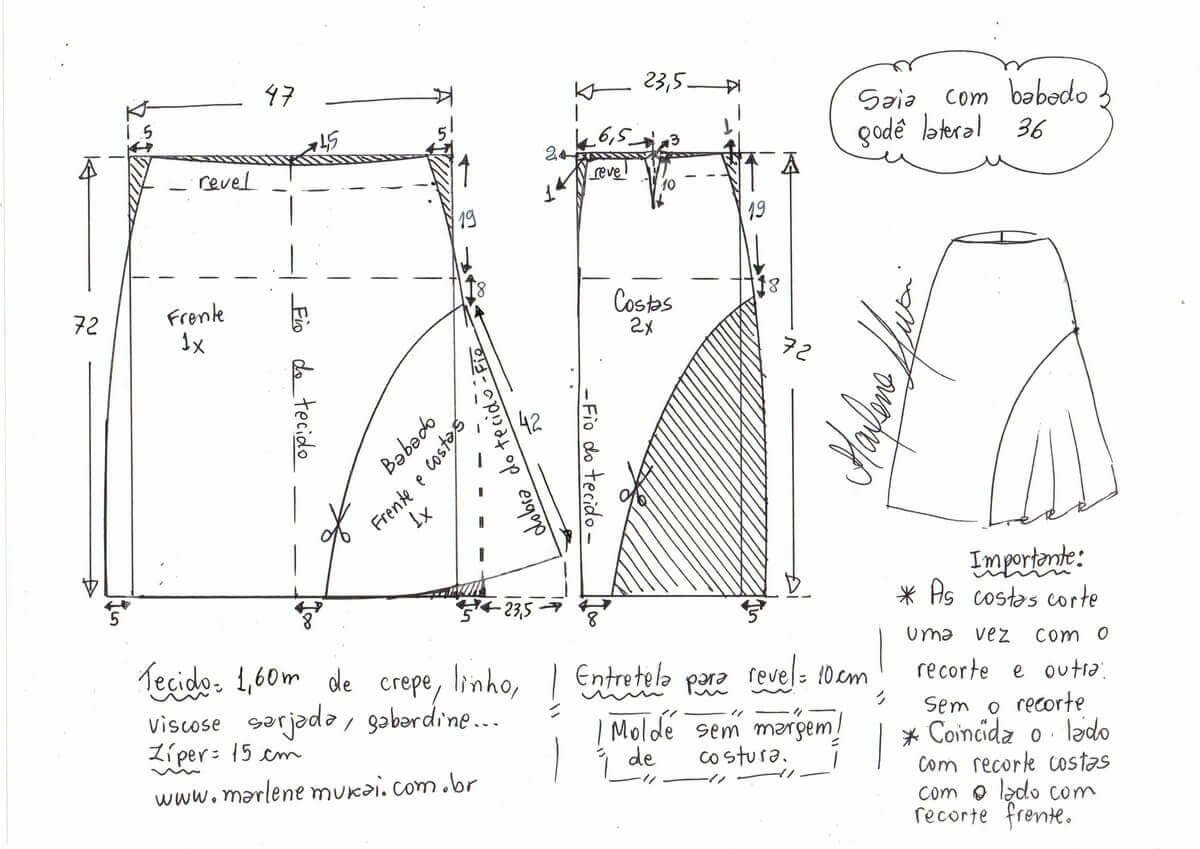 Saia com babado
godê lateral 36
47
5
1,5
5
revel
72
19
8
Frente
1x
Fio do tecido
42
Fio do tecido - dobra
Babado
Frente e costas
1x
5
8
5
23,5
23,5
6,5
3
1
2
1
revel
10
19
8
Costas
2x
72
Fio do tecido
8
5
Marlene Mukai
Tecido = 1,60m de crepe, linho,
viscose sarjada, gabardine...
Zíper = 15 cm
www.marlenemukai.com.br
Entretela para revel = 10cm
Molde sem margem
de costura.
Importante:
* As costas corte
uma vez com o
recorte e outra
sem o recorte
* Coincida o lado
com recorte costas
com o lado com
recorte frente.